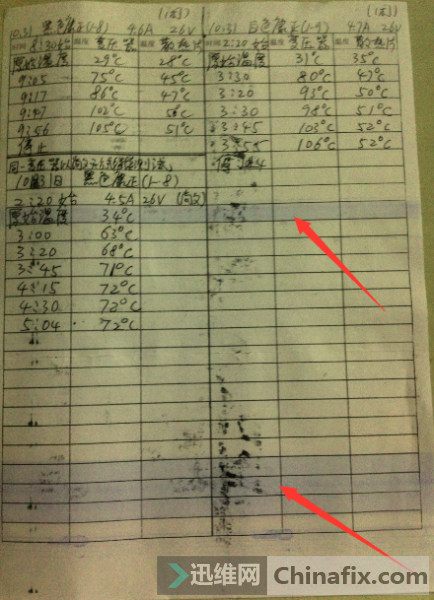 10.31 黑色 正(1-8) 4.6A 26V
10.31 白色 正(1-9) 4.7A 26V
时间 8:30始 温度 变压器 温度 散热片
时间 2:20始 温度 变压器 温度 散热片
原始温度 29℃ 28℃
原始温度 31℃ 35℃
9:05 75℃ 45℃
3:30 80℃ 47℃
9:17 86℃ 47℃
3:20 93℃ 50℃
102℃
3:30 98℃ 51℃
9:56 105℃ 51℃
3:45 103℃ 52℃
停止
3:55 106℃ 52℃
10月31日 黑色 正(1-8)
2:20始 4.5A 26V
原始温度 34℃
3:00 63℃
3:20 68℃
3:45 71℃
4:15 72℃
4:30 72℃
5:04 72℃
迅维网 Chinafix.com